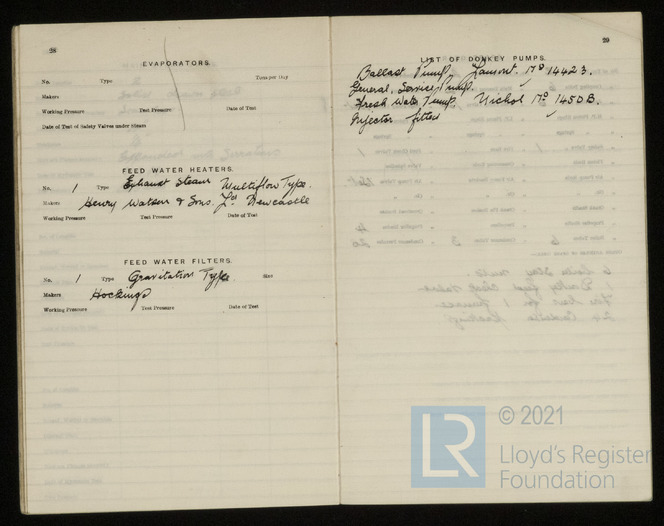 28
EVAPORATORS.
No. Type Tons per Day
Makers
Working Pressure Test Pressure Date of Test
Date of Test of Safety Valves under Steam
FEED WATER HEATERS.
No. 1 Type Exhaust Steam Multiflow Type.
Makers Henry Watson & Sons. Ld Newcastle
Working Pressure Test Pressure Date of Test
FEED WATER FILTERS.
No. 1 Type Gravitation Type. Size
Makers Hockings
Working Pressure Test Pressure Date of Test
29
LIST OF DONKEY PUMPS.
Ballast Pump Lamont. No 14423.
General Service Pump. ✓
Fresh Water Pump. Nichol No 1450B.
Injector fitted ✓
LR © 2021
Lloyd's Register
Foundation